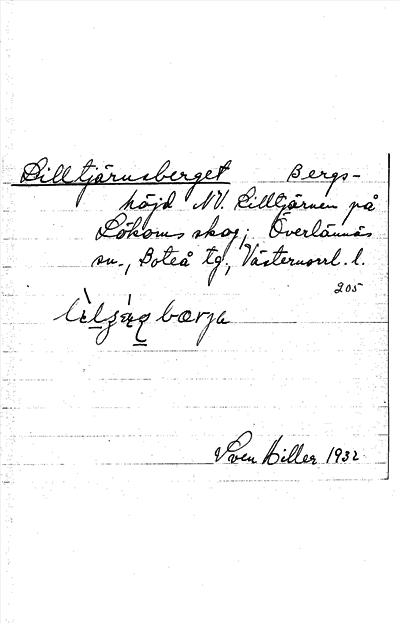 Lilltjärnsberget Bergs-
höjd NV. Lilltjärnen på
Lökoms skog; Överlännäs
sn., Boteå tg, Västernorrl. l.
205
bærja
Sven Hiller 1932